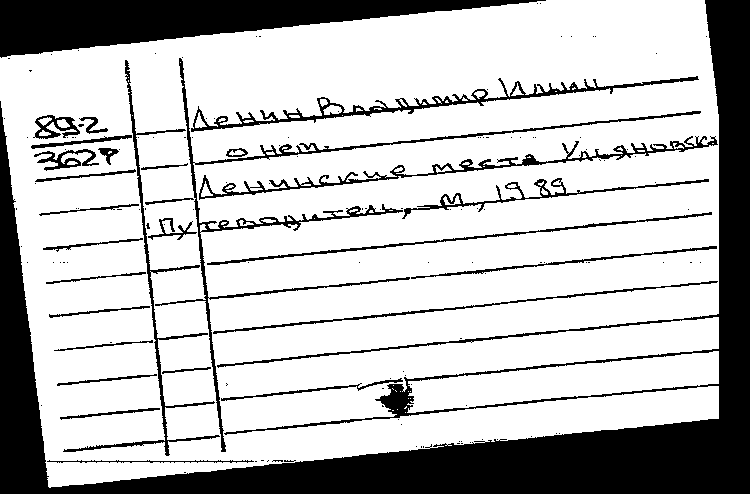 89-2
3627
Ленин, Владимир Ильич,
о нем.
Ленинские места Ульяновска
Путеводитель, -М, 1989.